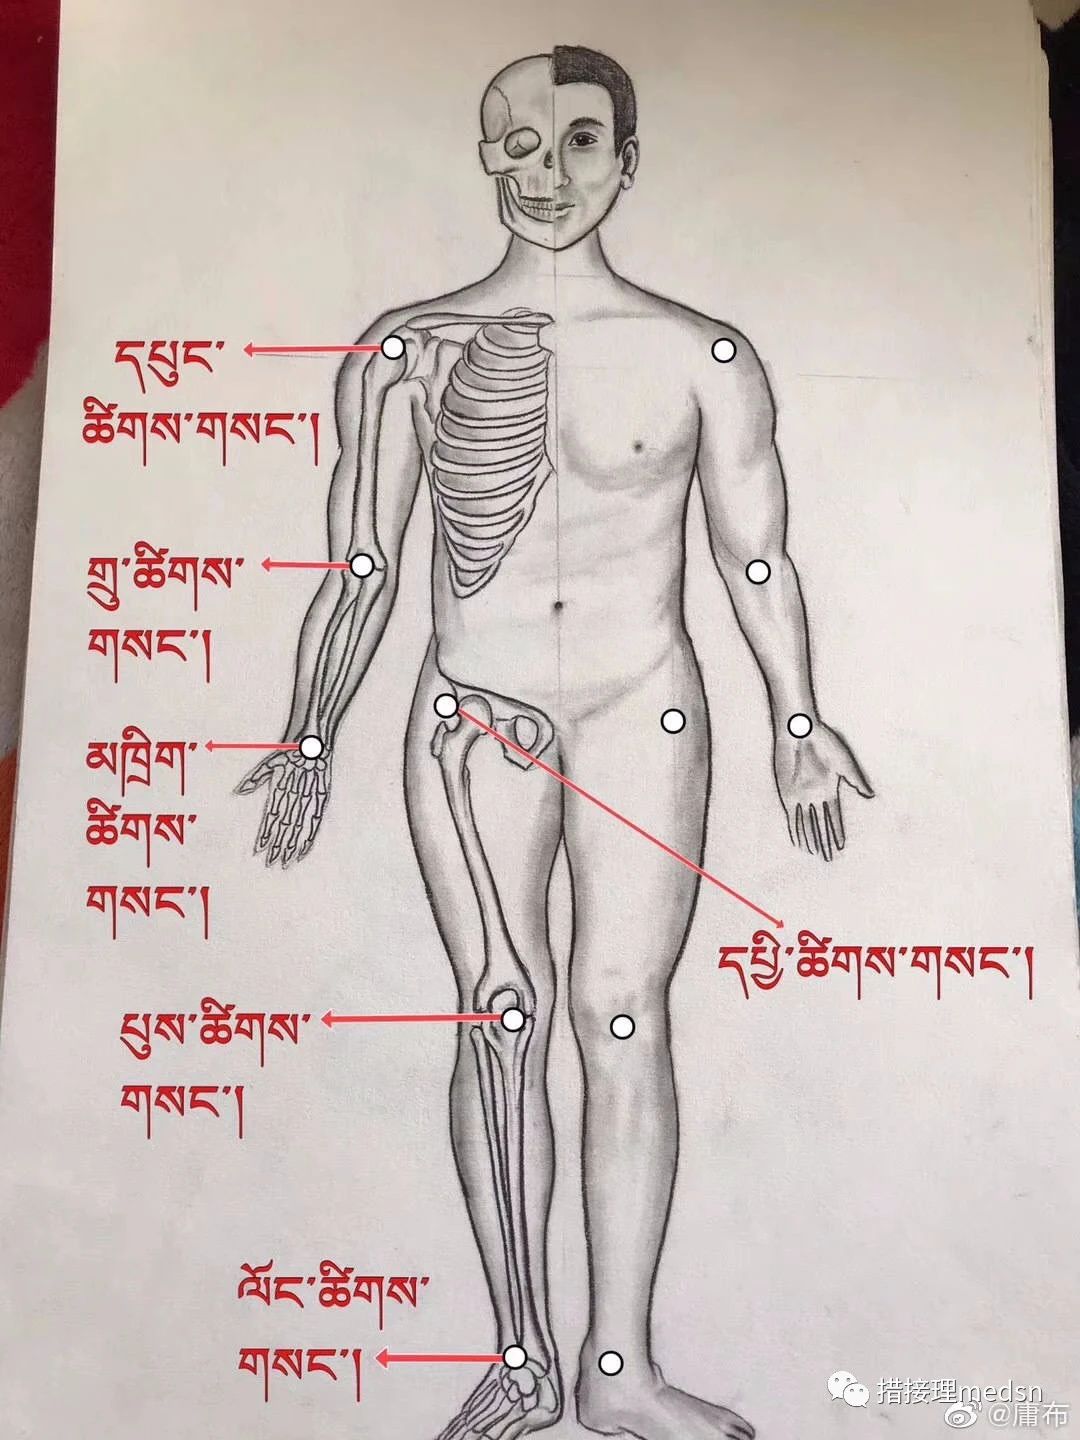 དཔུང་
ཚིགས་གསང་།
གྲུ་ཚིགས་
གསང་།
མཁྲིག་
ཚིགས་
གསང་།
དཔྱི་ཚིགས་གསང་།
པུས་ཚིགས་
གསང་།
ལོང་ཚིགས་
གསང་།
措接理medsn
@庸布